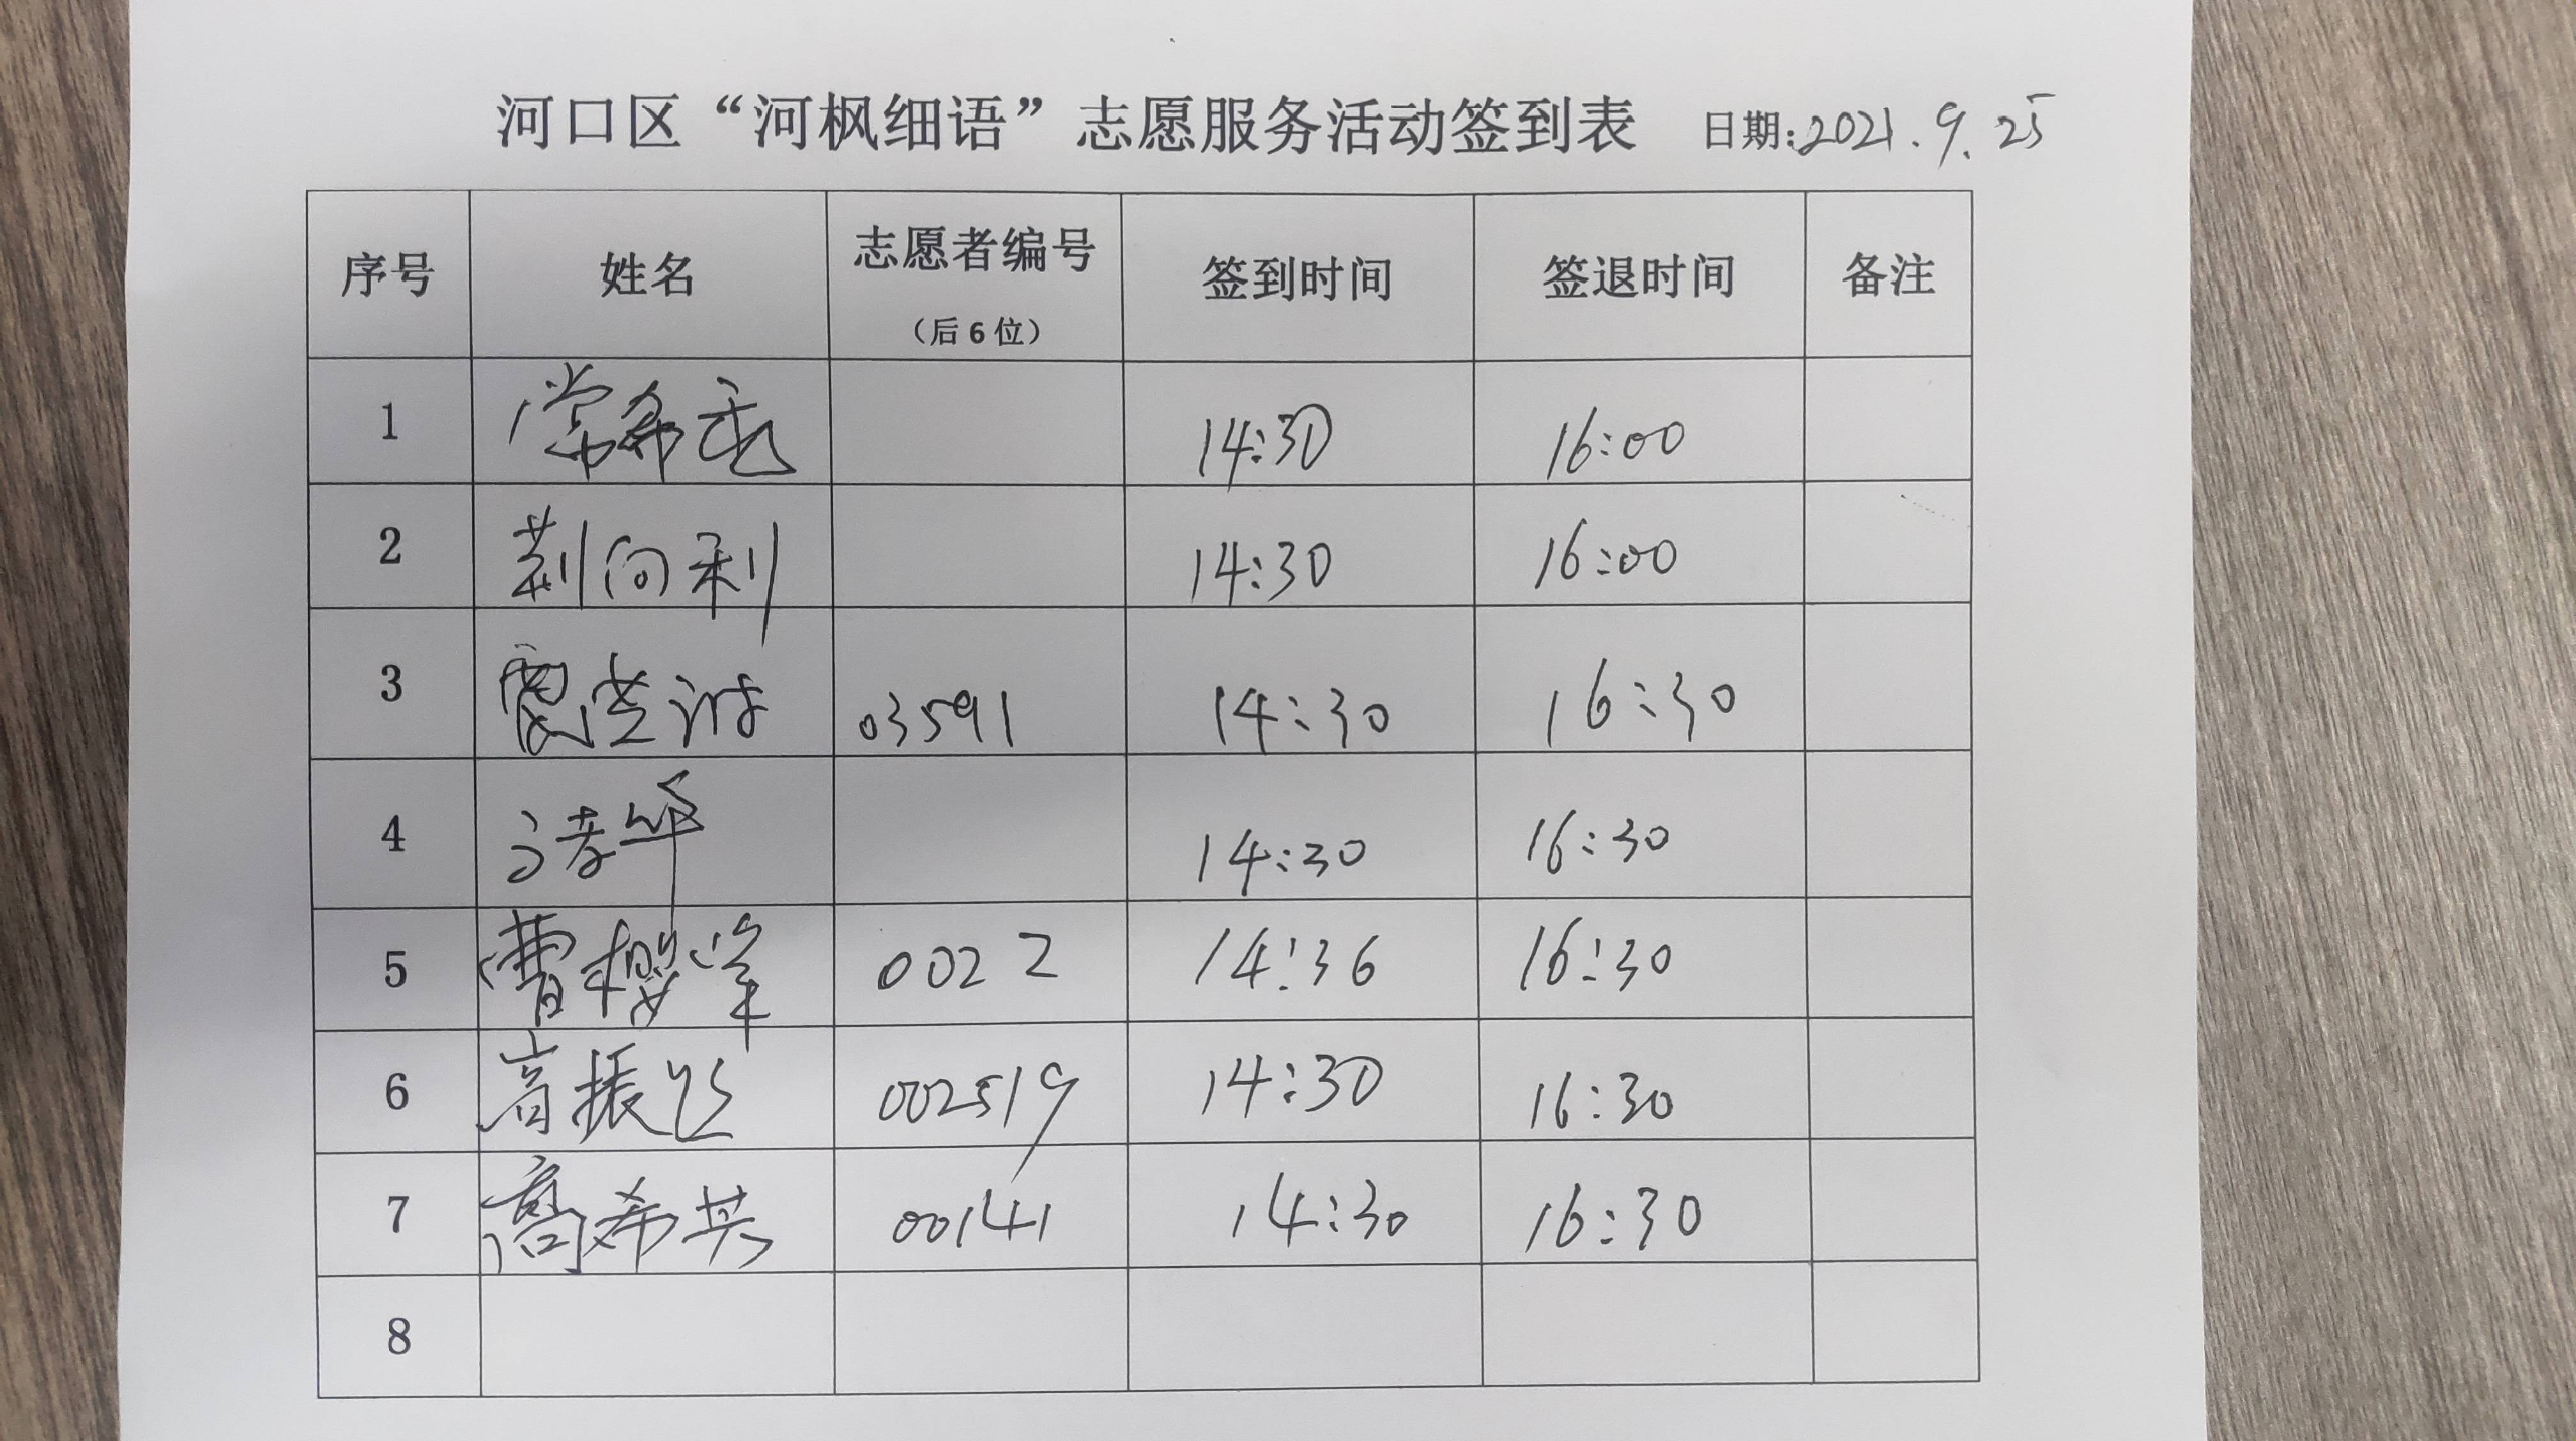 河口区“河枫细语”志愿服务活动签到表 日期:2021.9.25
序号 姓名 志愿者编号（后6位） 签到时间 签退时间 备注
1 常希 14:30 16:00
2 荆向利 14:30 16:00
3 03591 14:30 16:30
4 14:30 16:30
5 曹樱峰 0022 14:36 16:30
6 高振 002519 14:30 16:30
7 高希共 00141 14:30 16:30
8